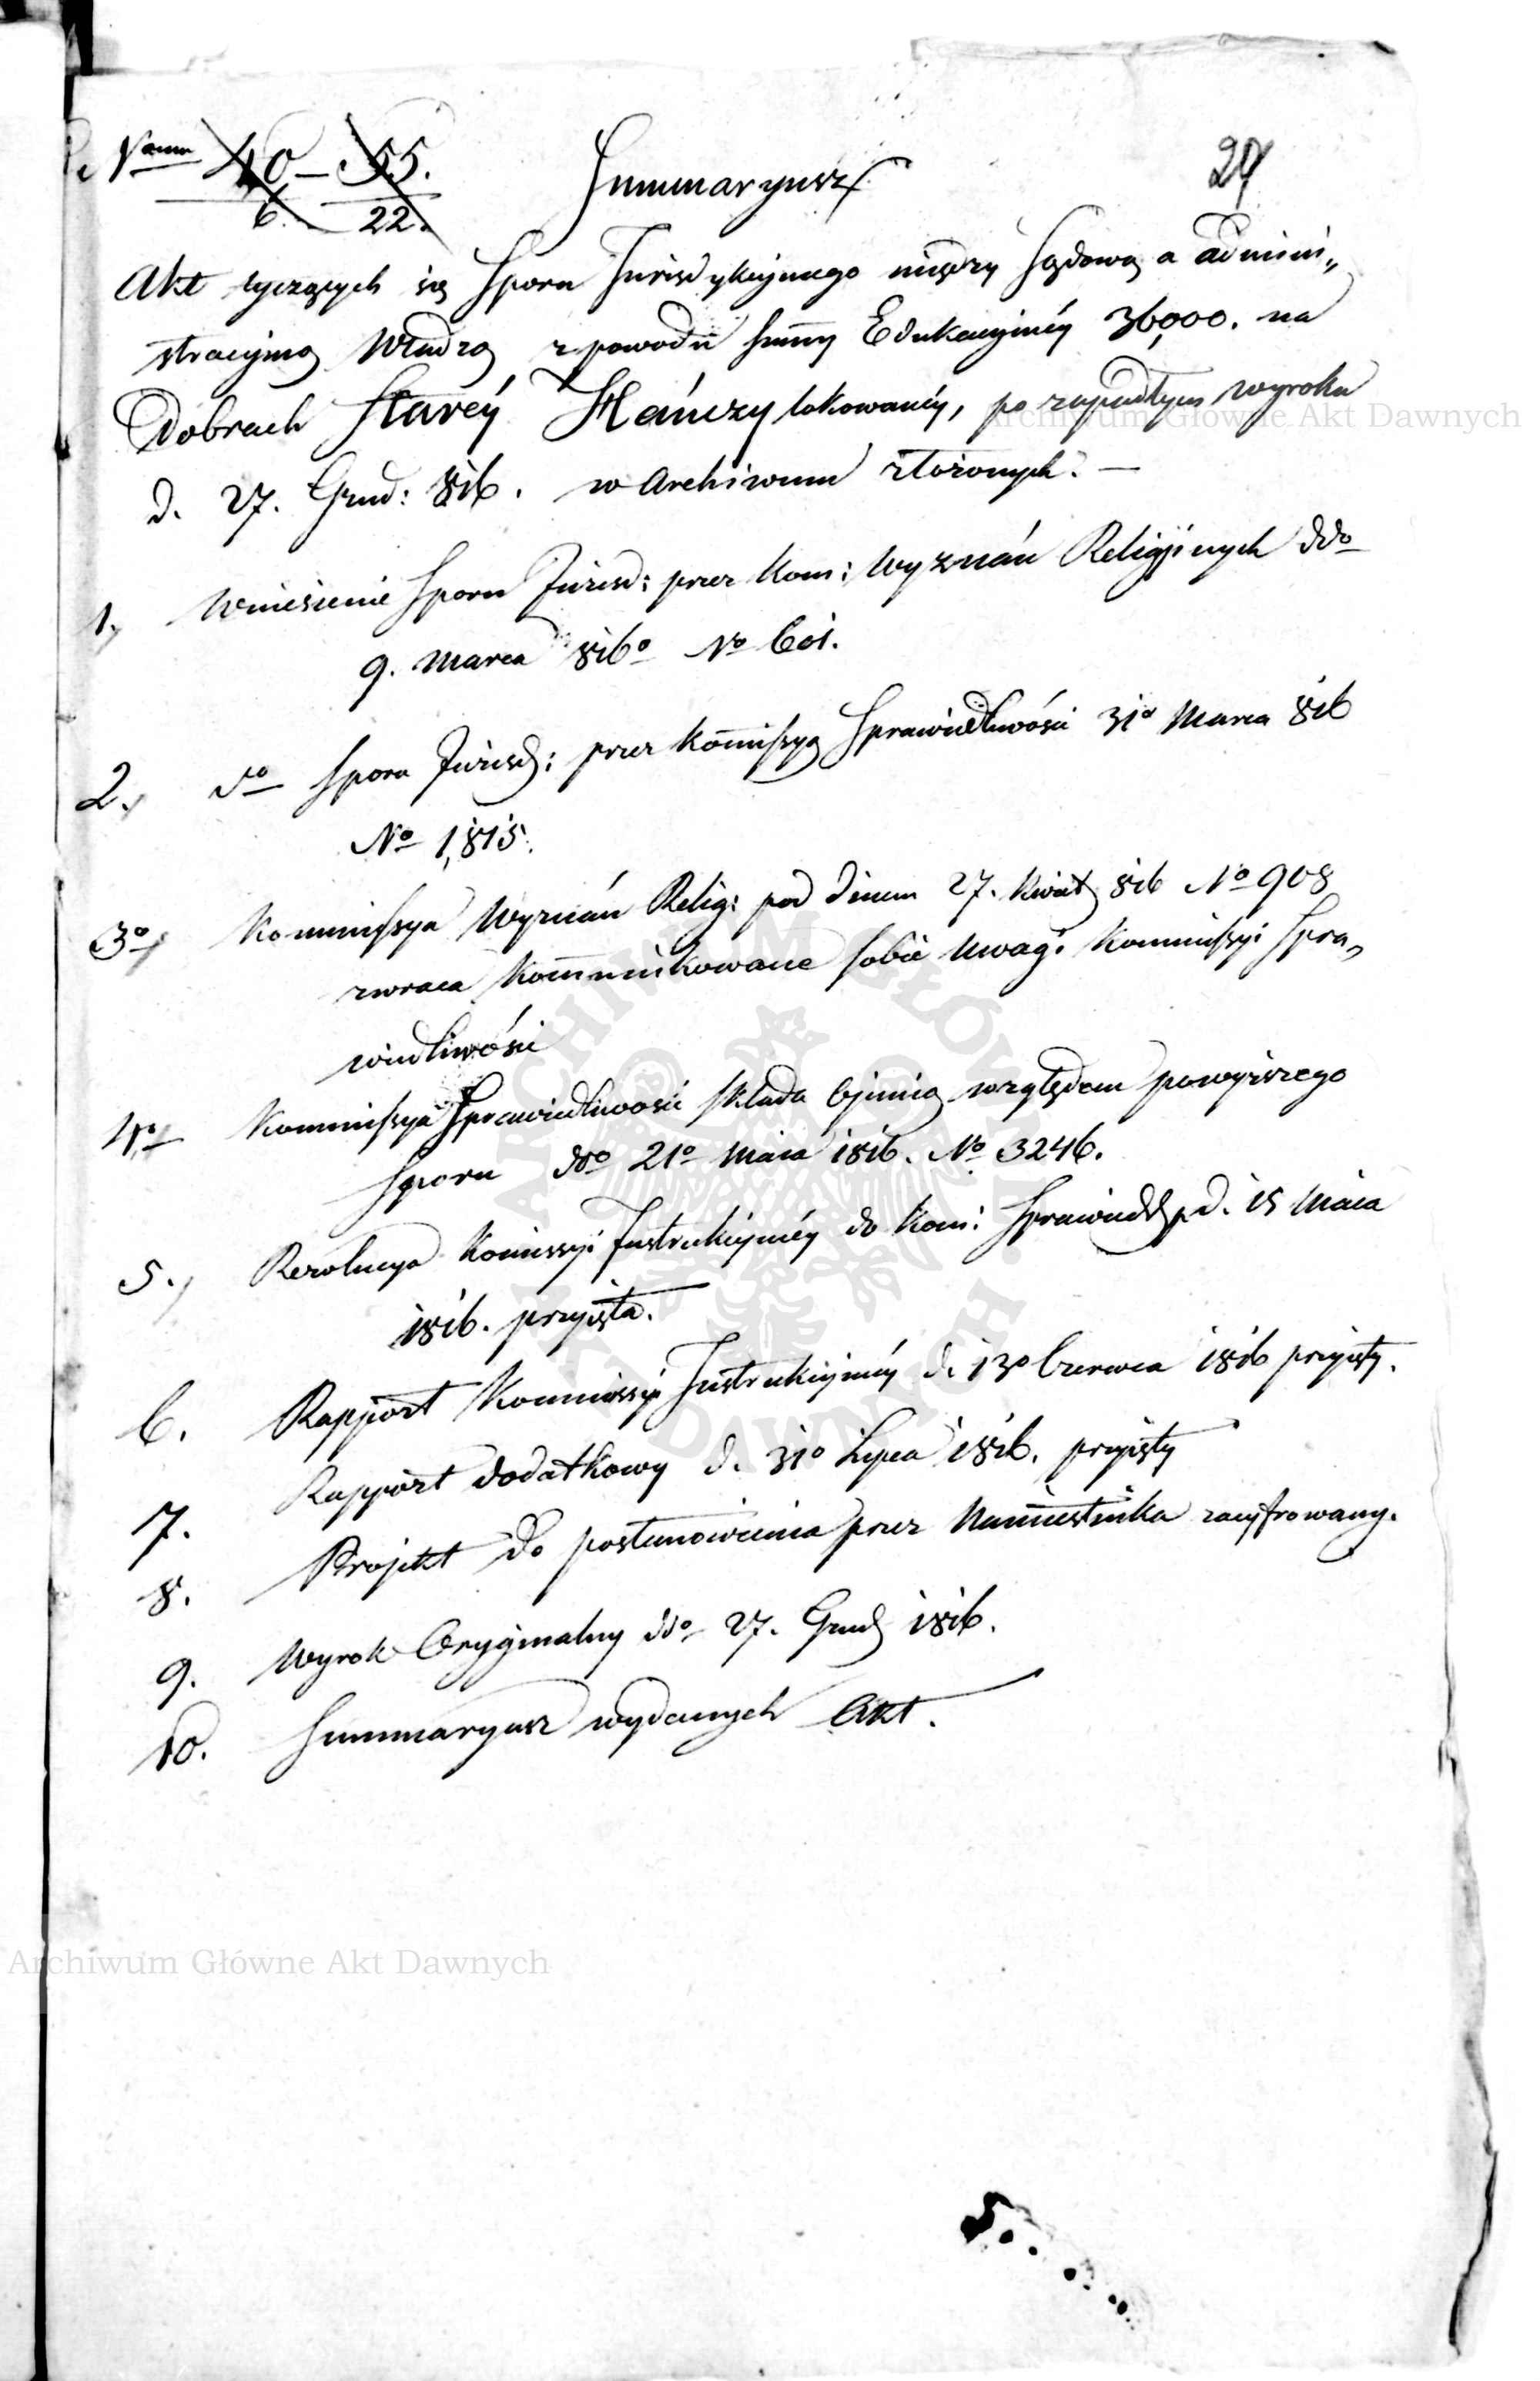 Numm 40 – 55.
6. 22.
Summaryusz
29
Akt tyczących się Sporu Jurisdykcyjnego między Sądową a admini„
stracyjną Władzą z powodu summy Edukacyjnéy 36,000. na
Dobrach Staréy Hańczy lokowanéy, po zapadłym wyroku
d. 27. Grud: 816. w Archiwum złożonych. —
1. Wniesienie Sporu Jurisd: przez Kom: Wyznań Religijnych ddo
9. Marca 816o No 601.
2. do Sporu Jurisd: przez Kommissyą Sprawiedliwości 31o Marca 816
No 1,815.
3o Kommissya Wyznań Relig: pod dniem 27. Kwiet 816 No 908
zwraca Kommunikowane sobie Uwagi Kommissyi Spra„
wiedliwości
4o Kommissya Sprawiedliwości składa Opinią względem powyższego
Sporu ddo 21o Maia 1816. No 3246.
5. Rezolucya Komissyi Instrukcyinéy do Kom: Sprawiedl p. d. 15 Maia
1816. przyięta.
6. Rapport Kommissyi Instrukcyinéy d. 13o Czerwca 1816 przyięty.
7. Rapport dodatkowy d. 31o Lipca 1816. przyięty
8. Projekt do postanowienia przez Namiestnika zacyfrowany.
9. Wyrok Oryginalny ddo 27. Grud 1816.
10. Summaryusz wydanych Akt.
Archiwum Główne Akt Dawnych
ARCHIWUM GŁÓWNE AKT DAWNYCH
Archiwum Główne Akt Dawnych